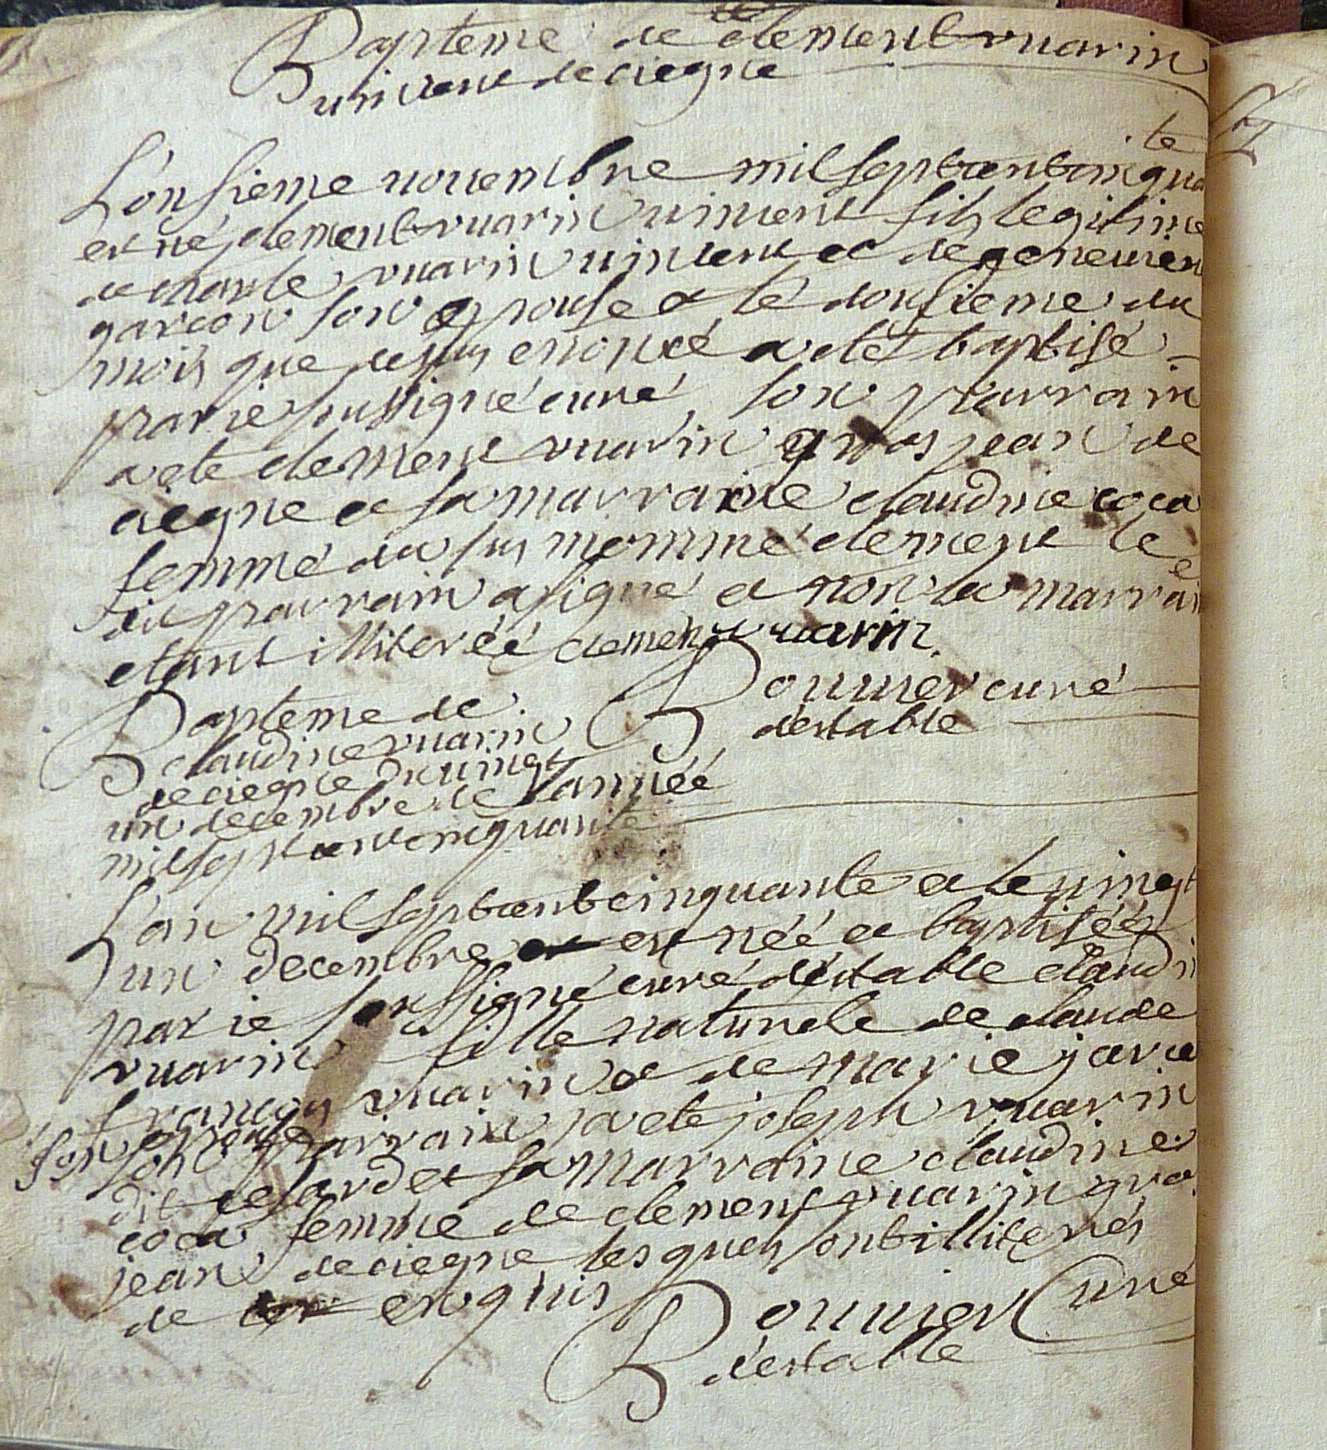 Bapteme de clement vuarin
vincent de ciegne
L'onsieme nouembre mil sept cent cinquante
est né clement vuarin vincent fils legitime
de charle vuarin vincent et de geneuieu
garcon son epouse et le dousieme du
mois que dessus enoncé a eté baptisé
par ie soussigné curé son parrain
a eté clement vuarin gros jean de
ciegne et sa marraine claudine coca
femme du sus nommé clement le
dit parrain a signé et non la marraie
etant illiterée clement vuarin
Bouuier curé
destable
Bapteme de
claudine vuarin
de ciegne du vingt
un decembre de l'année
mil sept cent cinquante
L'an mil sept cent cinquante et le vingt
un decembre est née et baptisée
par ie soussigné curé d'estable claudi
vuarin fille naturele de claude
francois vuarin et de marie jorca
son epouse
son parrain a eté joseph vuarin
dit et sa marraine claudine
coca femme de clement vuarin gro
jean de ciegne lesquels sont illiterés
de enquis
Bouuier Curé
d'estable